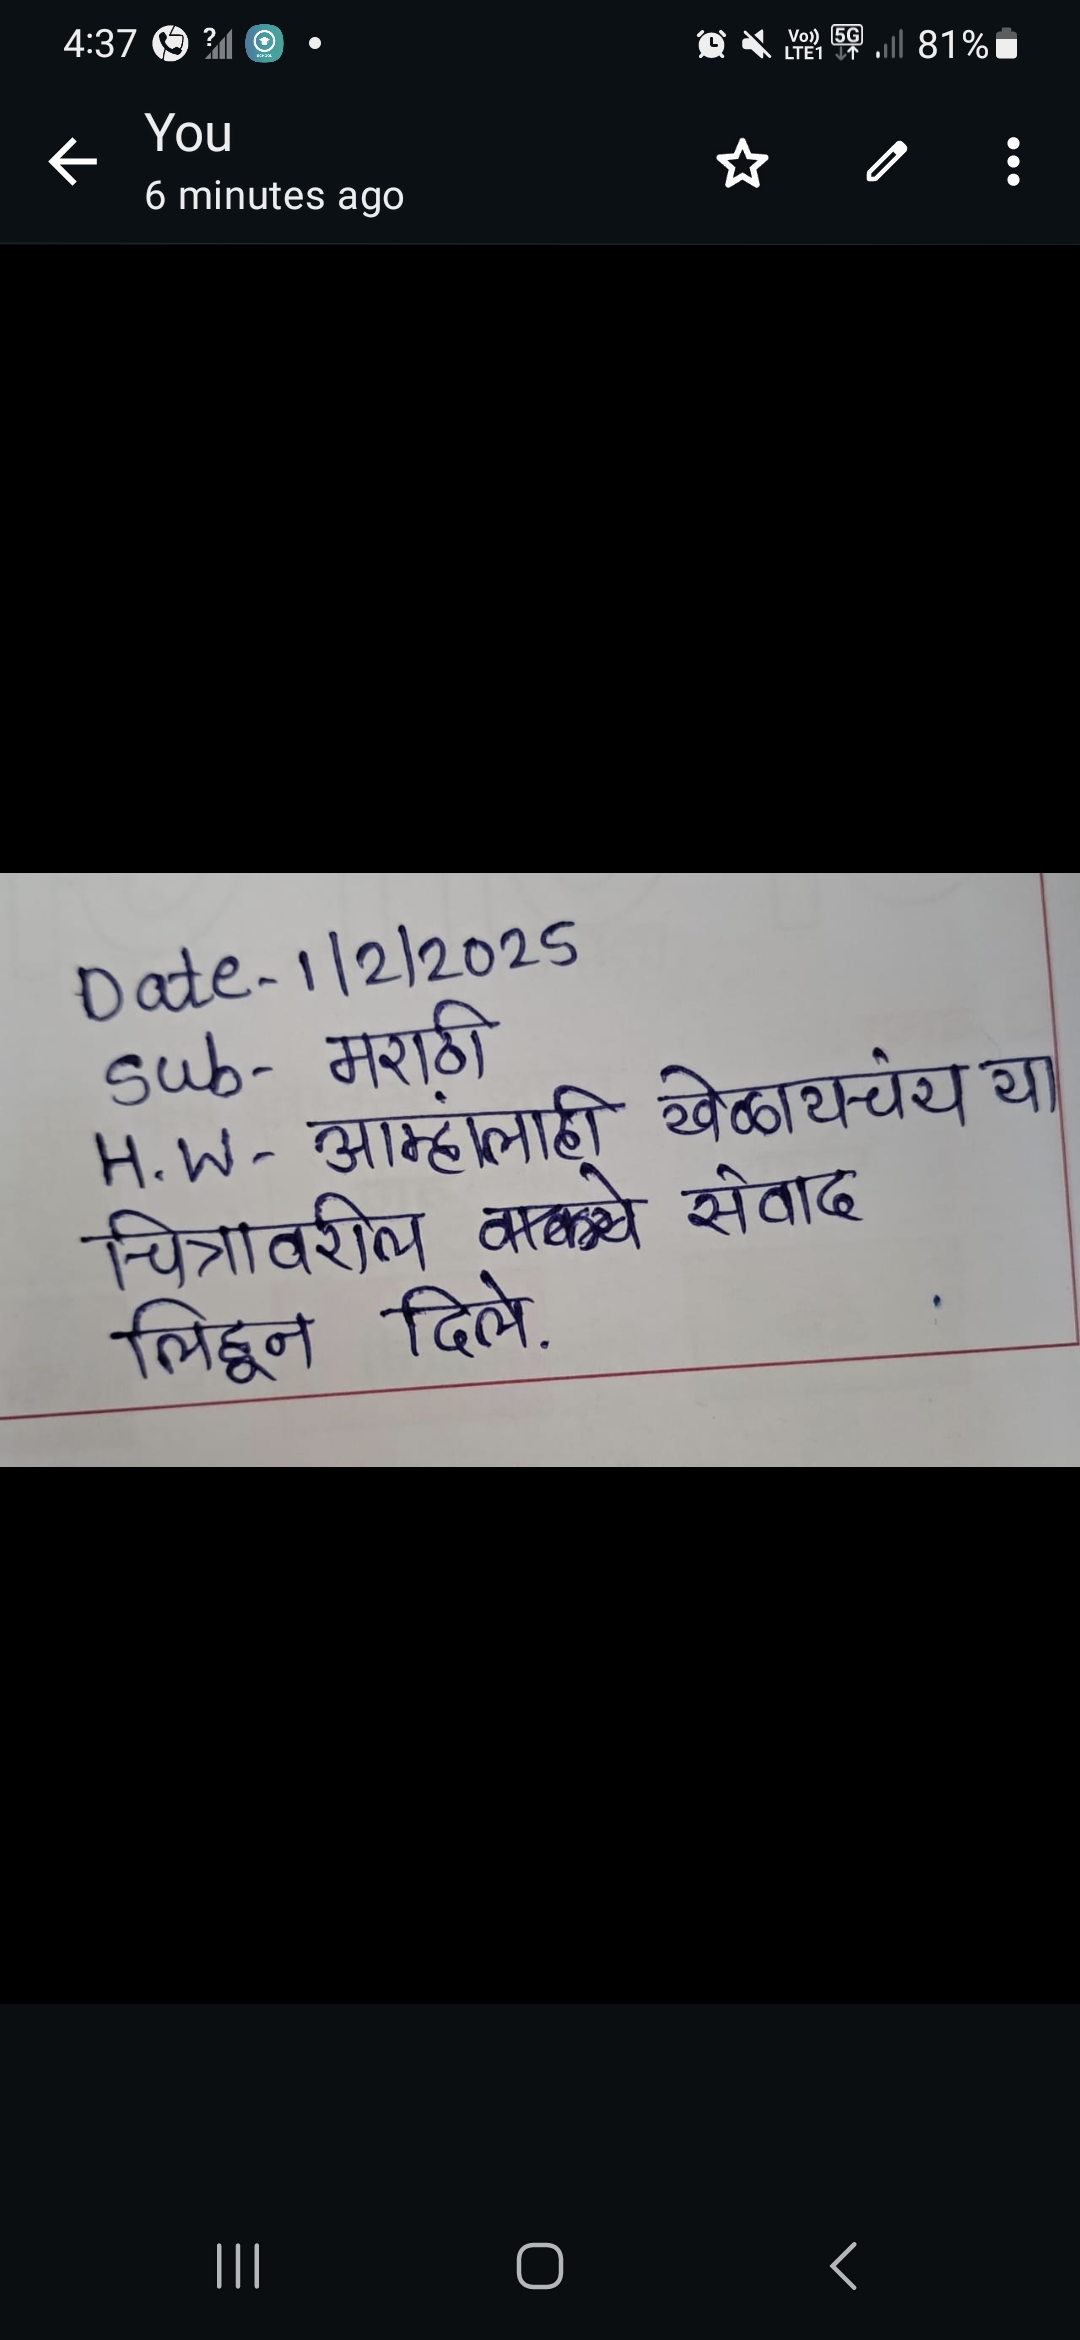 4:37 ? Vo)) LTE1 5G 81%
You
6 minutes ago
Date-1/2/2025
Sub- मराठी
H.W- आम्हांलाही खेळायचंय या
चित्रावरील संवाद
लिहून दिले.